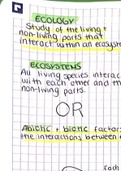 ECOLOGY
Study of the living +
non-living parts that
interact within an ecosyste
ECOSYSTEMS
All living species interac
with each other and th
non-living parts.
OR
Abiotic + biotic factors
the interactions between